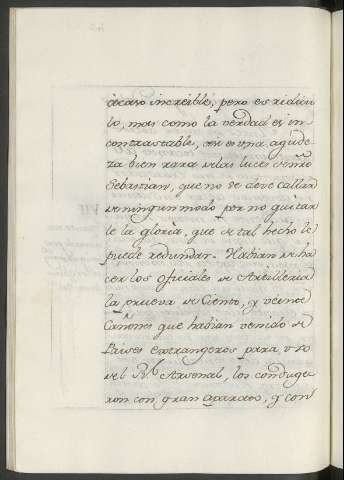 acaso increible, pero es ridicu
lo, mas como la verdad es in
contrastable, es una agude
za bien rara de las luces de nro
Sebastian, que no se deve callar
de ningun modo por no quitar
le la gloria, que de tal hecho le
puede redundar. Habian de ha
cer los oficiales de Artilleria
la prueva de Ciento, y veinte
Cañones que habian venido de
Paises extrangeros para uso
del Rl. Arsenal, los conduge
ron con gran aparato, y con